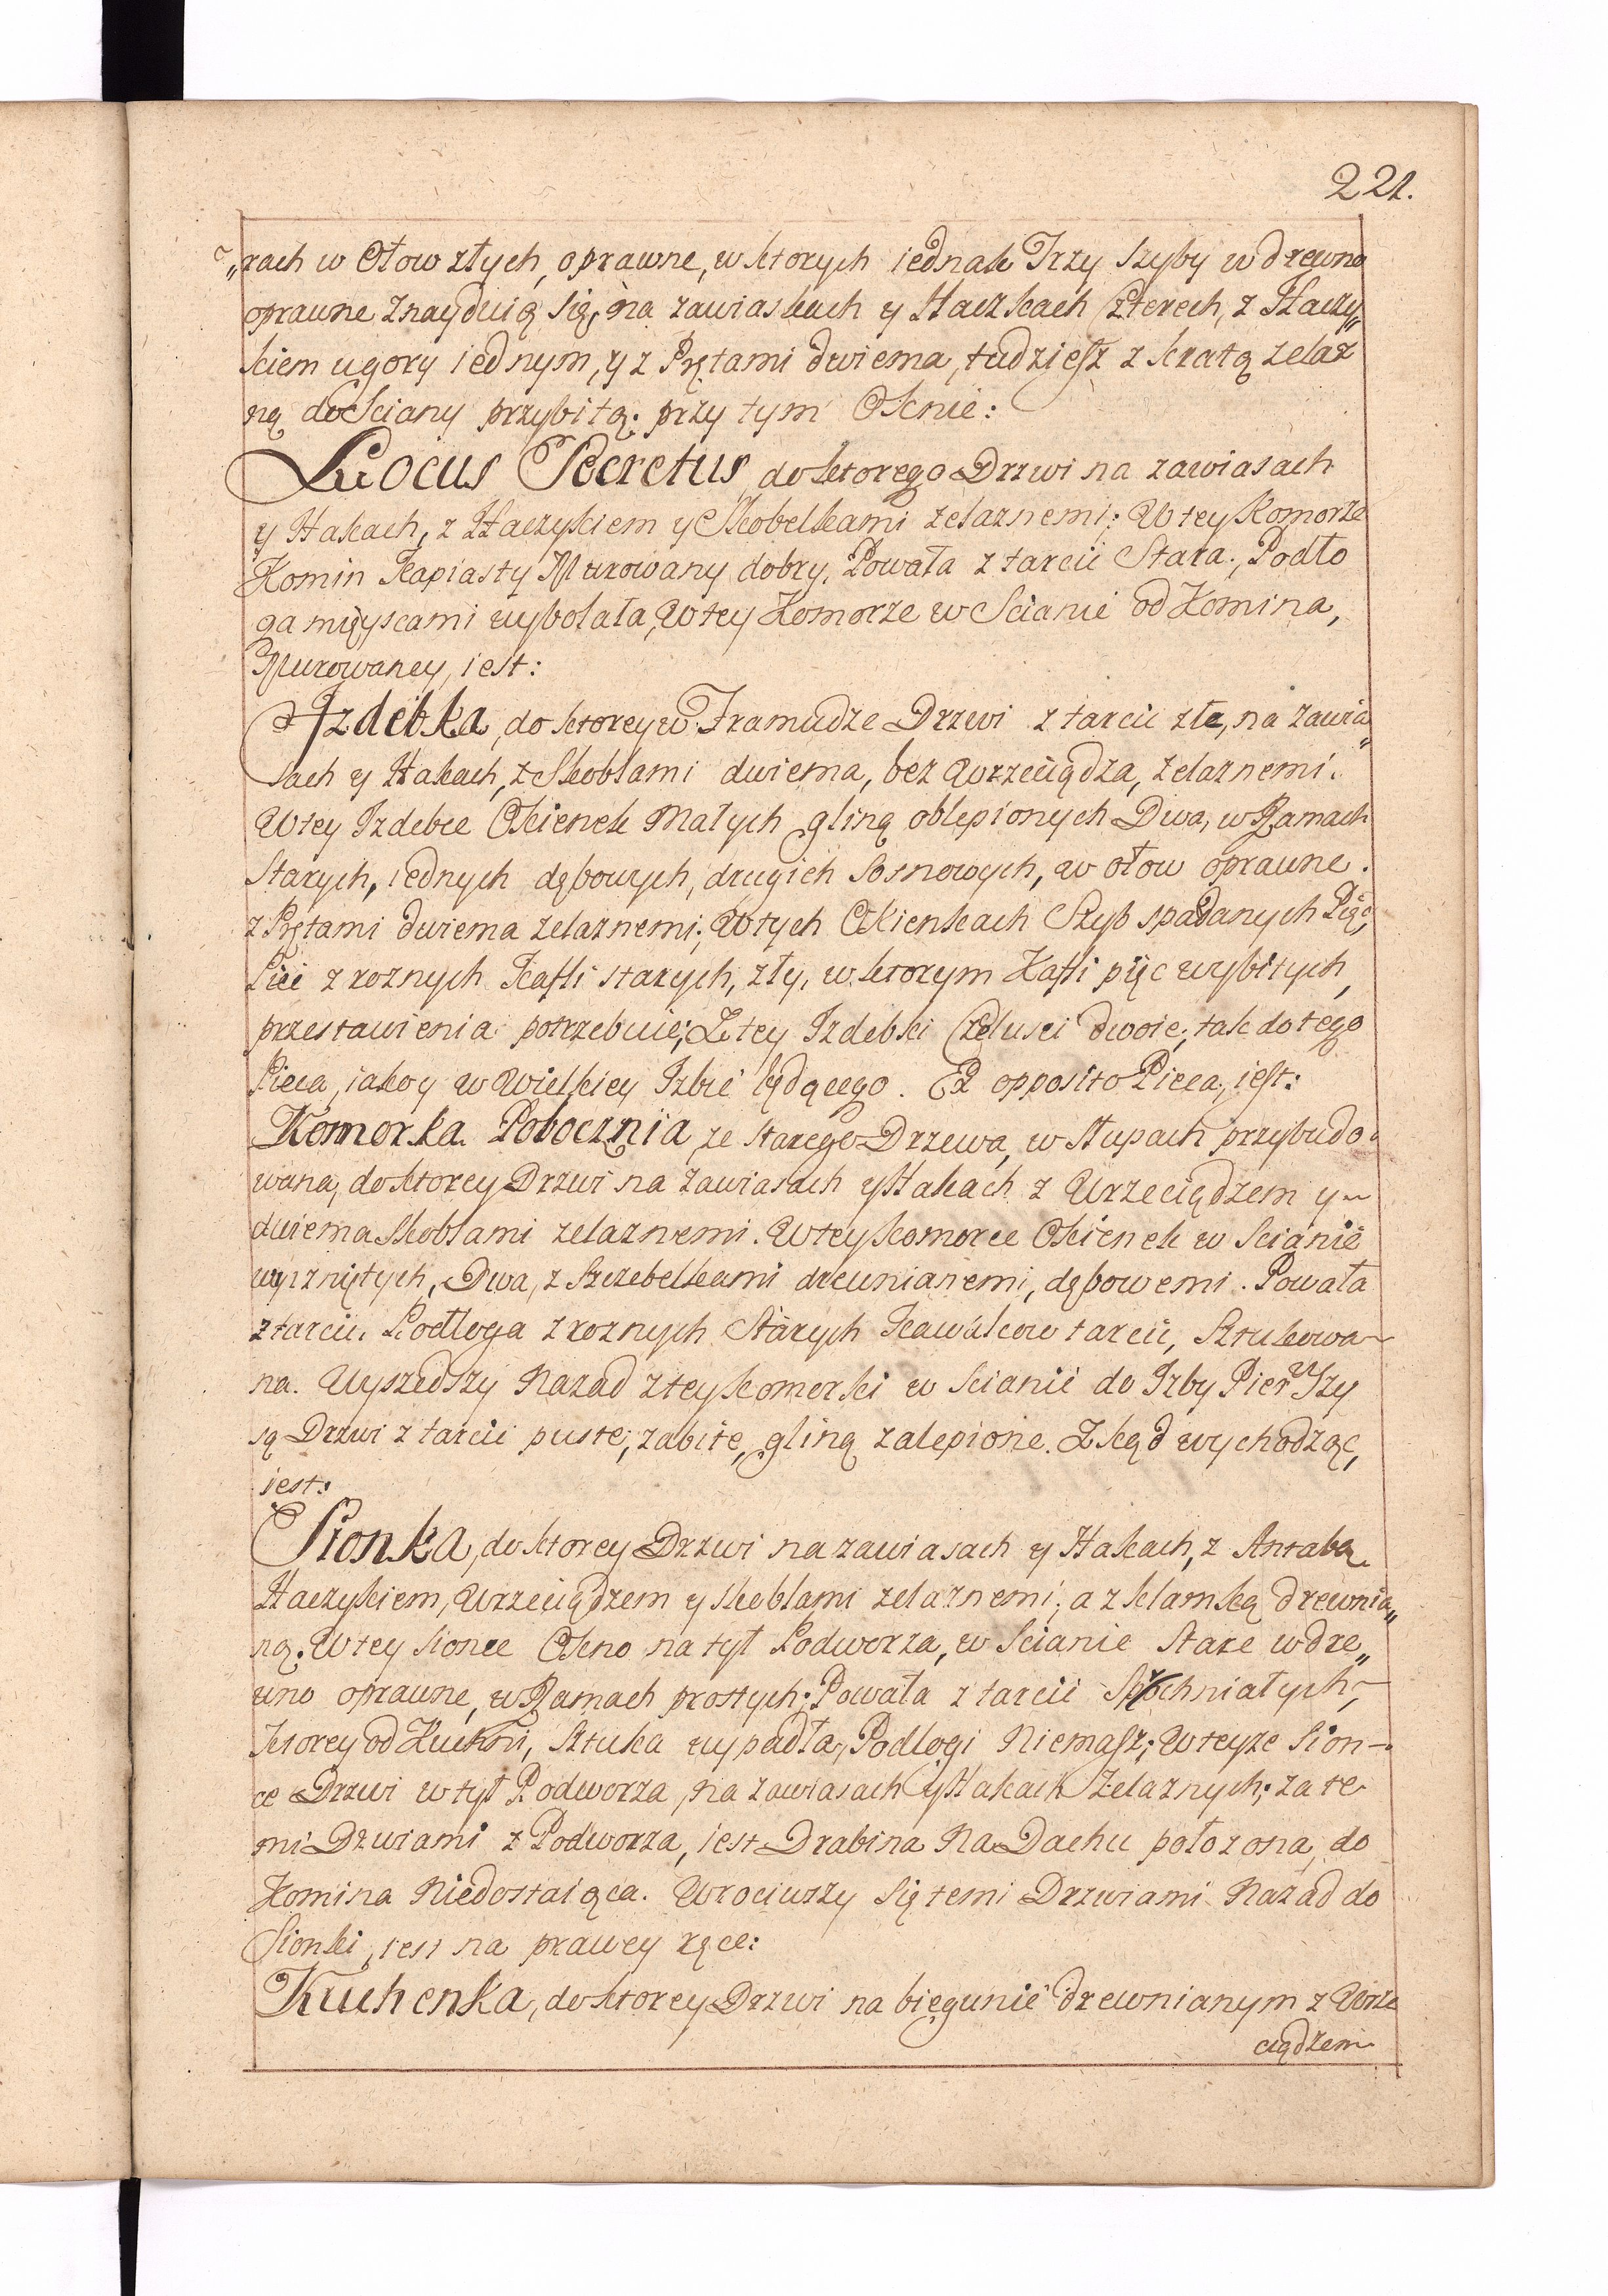 221.
„rach w Ołow złych, oprawne, w ktorych iednak Trzy Szyby w drewno
oprawne znayduią się, na zawiaskach y Haczkach czterech, z Haczy„
kiem u gory iednym, y z Prętami dwiema, tudzież z kratą żelaz
ną do Sciany przybitą: przy tym Oknie:
Locus Secretus, do ktorego Drzwi na zawiasach
y Hakach, z Haczykiem y Skobelkami żelaznemi; W tey Komorze
Komin Kapiasty Murowany dobry, Powała z tarcic Stara, Podło
ga mięyscami wybolała, W tey Komorze w Scianie od Komina,
Murowaney, iest:
Izdebka, do ktorey w Framudze Drzwi z tarcic złe, na zawia„
sach y Hakach, z Skoblami dwiema, bez Wrzeciądza, żelaznemi.
W tey Izdebce Okienek Małych gliną oblepionych Dwa, w Ramach
Starych, iednych dębowych, drugich Sosnowych, w ołow oprawne.
z Prętami dwiema żelaznemi; W tych Okienkach Szyb spadanych Pięć,
Piec z roznych Kafli starych, zły, w ktorym Kafli pięc wybitych,
przestawienia potrzebuie; Z tey Izdebki Czeluści dwoie, tak do tego
Pieca, iako y w Wielkiey Izbie będącego. Ex opposito Pieca, iest:
Komorka Pobocznia ze starego Drzewa, w słupach przybudo„
wana, do ktorey Drzwi na zawiasach y Hakach z Wrzeciądzem y
dwiema Skoblami żelaznemi. W tey komorce Okienek w Scianie
wyrzniętych, Dwa, z Szczebelkami drewnianemi, dębowemi. Powała
z tarcic. Podłoga z roznych Starych Kawałkow tarcic, Sztukowa-
na. Wyszedszy Nazad z tey komorki w Scianie do Izby Pierwszy
są Drzwi z tarcic puste, zabite, gliną zalepione. Zkąd wychodząc,
iest:
Sionka, do ktorey Drzwi na zawiasach y Hakach, z Antabą
Haczykiem, Wrzeciądzem y skoblami żelaznemi, a z klamką drewnia„
ną. W tey sionce Okno na tył Podworza, w Scianie Stare w dre„
wno oprawne, w Ramach prostych; Powała z tarcic Spochniałych,
ktorey od Kuchni, Sztuka wypadła, Podłogi Niemasz; W teyże Sion-
ce Drzwi w tył Podworza, na zawiasach y Hakach żelaznych; za te
mi Drzwiami z Podworza, iest Drabina Na Dachu położona, do
Komina Niedostaiąca. Wrociwszy się temi Drzwiami Nazad do
Sionki, iest na prawey ręce:
Kuchenka, do ktorey Drzwi na biegunie drewnianym z Wrze
ciądzem